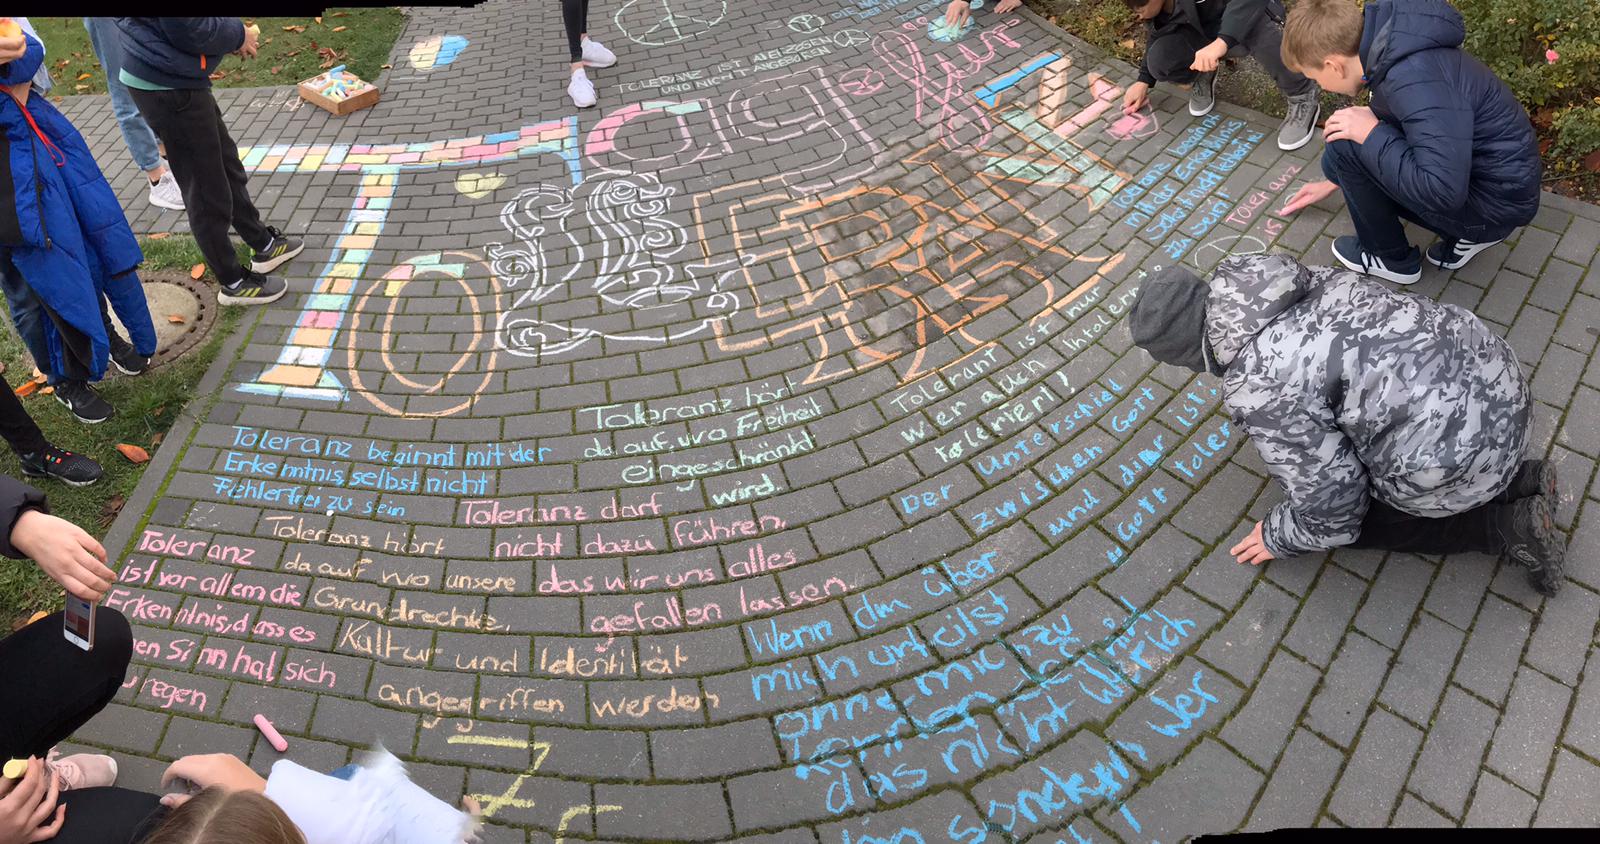 TOLERANZ IST ANERZOGEN
UND NICHT ANGEBOREN
Tag für
ToLERANZ
Toleranz beginnt
mit der Erkenntnis,
selbst nicht fehlerfrei
zu sein!
Toleranz
is
Tolerant ist nur
wer auch Intoleranz
toleriert!
Toleranz hört
da auf, wo Freiheit
eingeschränkt
wird.
Toleranz beginnt mit der
Erkenntnis, selbst nicht
Fehlerfrei zu sein
Toleranz darf
nicht dazu führen,
das wir uns alles
gefallen lassen.
Der Unterschied
zwischen Gott
und dir ist:
"Gott toler
Toleranz hört
da auf wo unsere
Grundrechte,
Kultur und Identität
angegriffen werden
Toleranz
ist vor allem die
Erkenntnis, dass es
Sinn hat sich
regen
Wenn du über
mich urteilst
ohne mich zu
kennen
das nicht wer ich
bin sondern wer